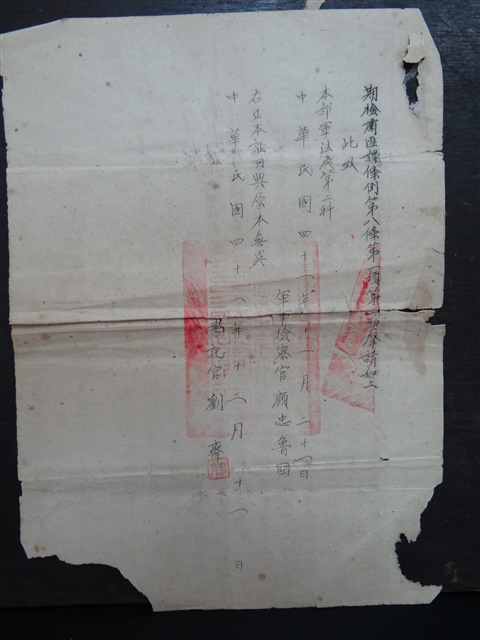 期檢肅匪諜條例第八條第一項第一款聲請如上
此致
本部軍法處第二科
中華民國四十一年十一月二十一日
軍事檢察官顧忠魯
右正本証明與原本無異
中華民國四十一年十二月十一日
書記官劉齊